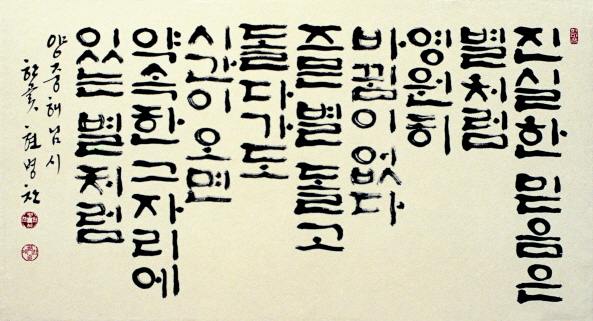 진실한 믿음은
별처럼
영원히
바뀜이 없다
즈믄 별 돌고
돌다가도
시간이 오면
약속한 그 자리에
있는 별처럼
양중해 님 시
한곬 현병찬